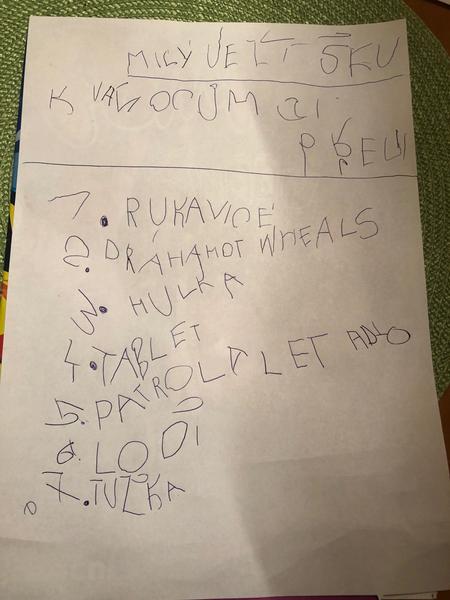 MILÝ JEŽÍŠKU
K VÁNOCŮM SI
PŘEJI
1. RUKAVICE
2. DRÁHA HOT WHEALS
3. HULKA
4. TABLET
5. PATROLA LET ADLO
6. LODI
7. TUŽKA